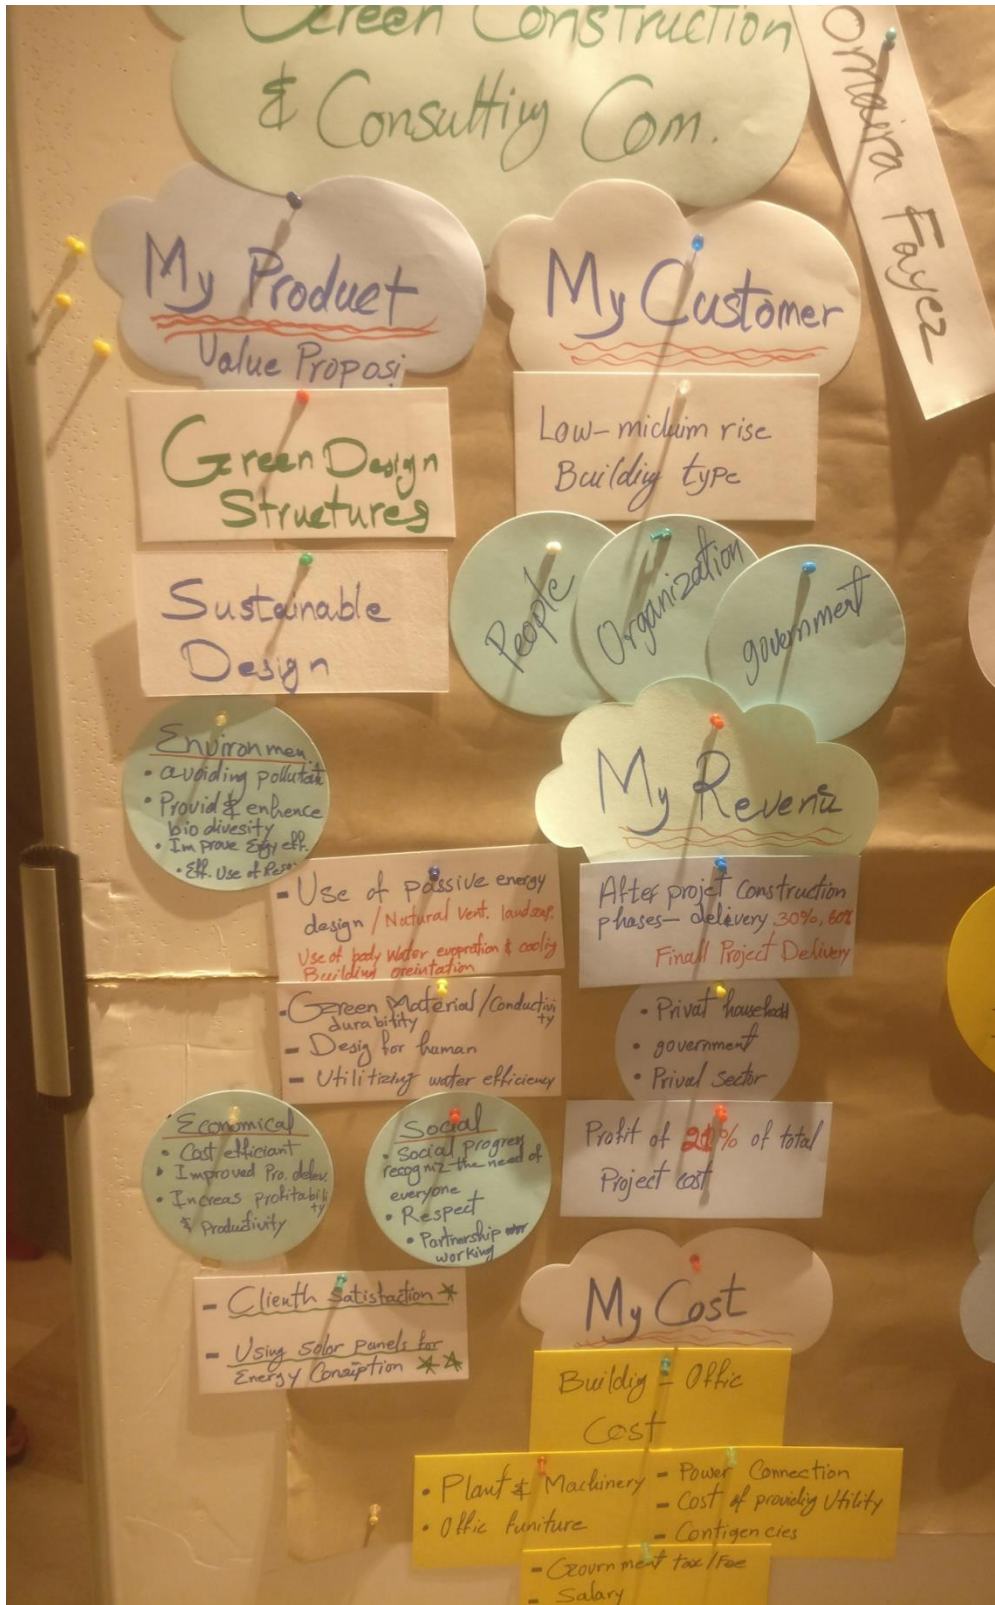 Green Construction
& Consulting Com.
Omaira Fayez
My Product
Value Proposi
Green Design
Structures
Sustainable
Design
Environmen
• avoiding pollutat
• Provid & enhence
bio divesity
• Improve Engy eff.
• Eff. Use of Reso
- Use of passive energy
design / Natural vent. landscap.
Use of body water evopration & coolig
Building oreintation
- Green Material / Conductivi
ty
durability
- Desig for human
- Utilitizing water efficiency
• Economical
• Cost efficiant
• Improved Pro. delev.
• Increas profitabili
ty
& Productivity
Social
• Social progress
recogniz the need of
everyone
• Respect
• Partnership
working
- Clienth Satisfaction
- Using solar panels for
Energy Consiption
My Customer
Low-miduim rise
Building type
People
Organization
government
My Revenu
After projet Construction
phases- delivery, 30%, 60%
Finall Project Delivery
• Privat household
• government
• Privat sector
Profit of 21% of total
Project cost
My Cost
Buildig - Offic
Cost
• Plant & Machinery
• Offic funiture
- Power Connection
- Cost of providig Utility
- Contigencies
- Government tax/Fee
- Salary